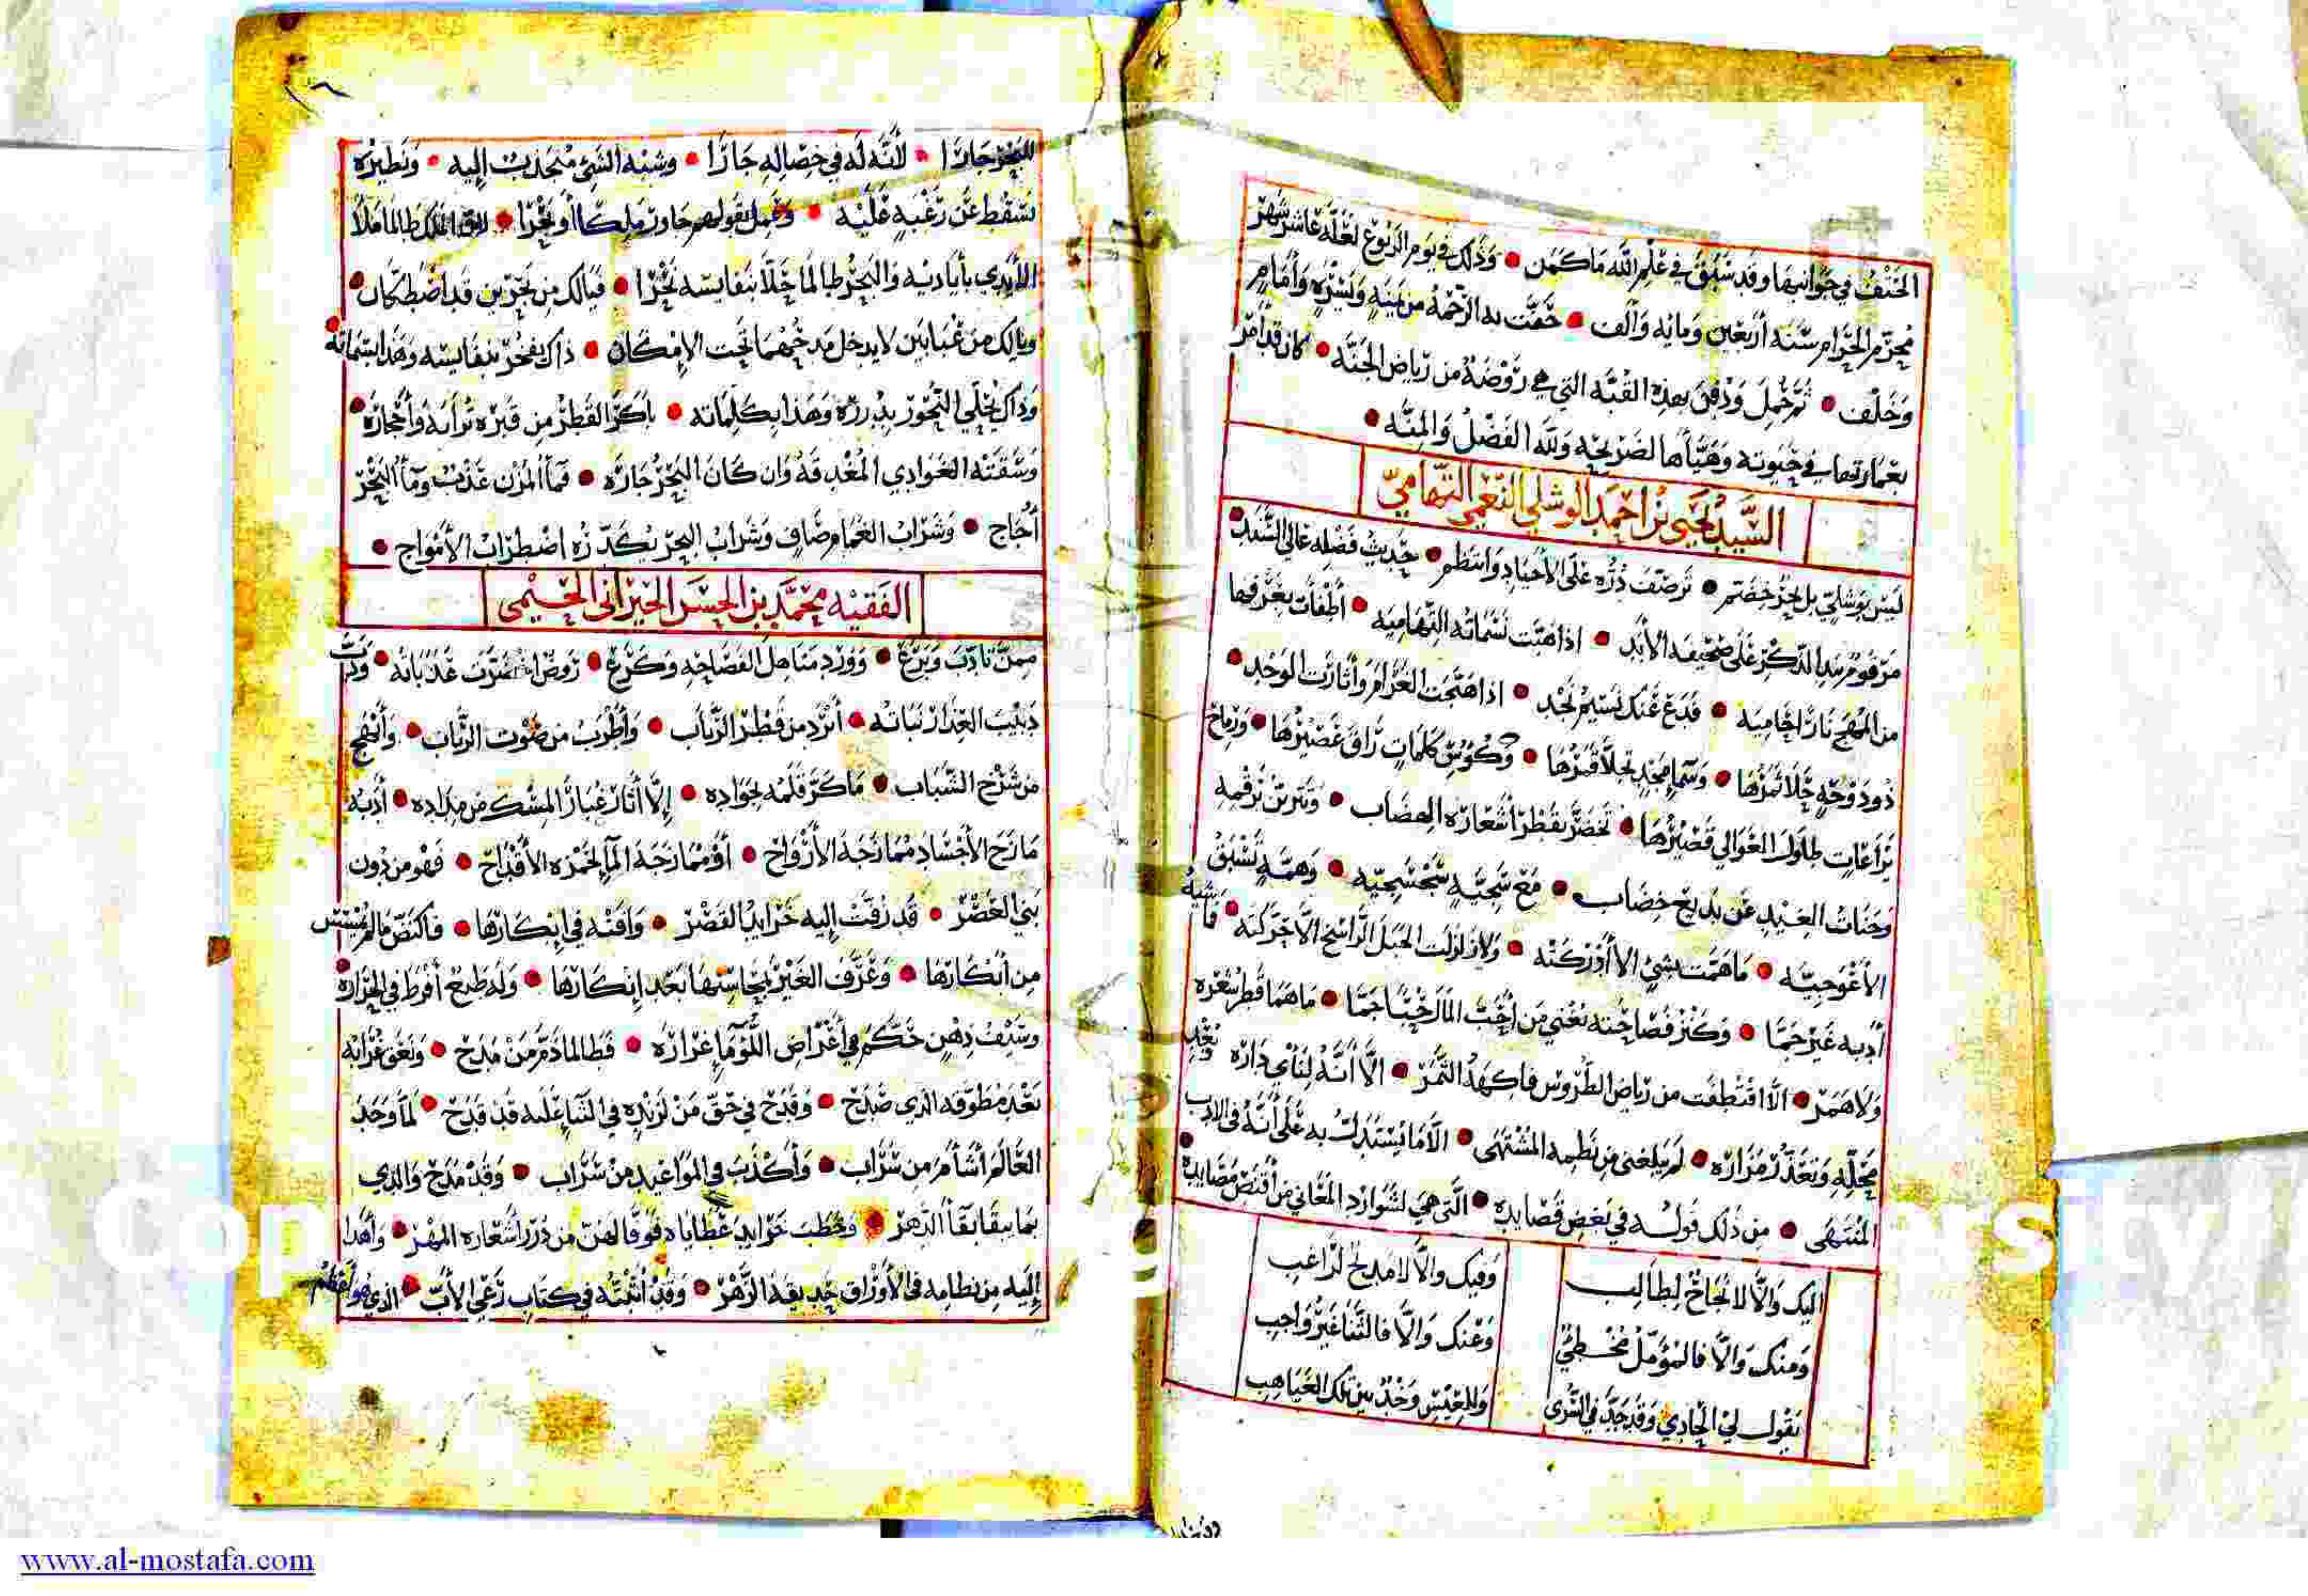 الحتف في جوانبها وقد سبق في علم الله ما كمن • وذلك في يوم الربوع لعله عاشر شهر
محرم الحرام سنة أربعين ومائه وألف • حفت به الرحمة من يمنه ويسره وأمام
وخلف • ثم حمل ودفن بهذه القبه التي هي روضة من رياض الجنه • كان قد أمر
بعمارتها في حيوته وهيأها لضريحه ولله الفضل والمنه •
السيد يحيى بن احمد الوشلي النعمي التهامي
ليس بوشلي بل بحر خضم • ترصف دره على الأجياد وانتظم • حديث فضله عالي السند
مرقوم بيد الذكر على صحيفة الأبد • اذا هبت نسماته التهاميه • أطفأت بعرفها
من المهج نارا حاميه • فدع عنك نسيم نجد • اذا هيجت الغرام وأثارت الوجد •
ذو دوحة حلا ثمرها • وسماء مجد تجلا قمرها • وكؤس كلمات راق عصيرها • ورماح
يراعات طاول العوالي قصيرها • تخضر بقطر أشعاره الهضاب • وتبرين برقمه
وجنات الغيد عن بديع خضاب • مع سجية سجسجيه • وهمة تسبق
الأعوجيه • ما همت بشيء الا أدركته • ولا زاولت الجبل الراسخ الا حركته • فأشبه
أدبه غير جما • وكنز فصاحته تغني من أحب المال حبا جما • ما هما قطر شعره
ولا همر • الا اقتطفت من رياض الطروس فاكهة الثمر • الا أنه لنأي داره وبعد
محله وتعذر مزاره • لم يبلغني من نظمه المشتهى • الا ما يستدل به على أنه في الادب
المنتهى • من ذلك قوله في بعض قصايده • التي هي لشوارد المعاني من أقنص مصايده •
اليك والا لا نجاح لطالب وفيك والا لا مديح لراغب
ومنك والا فالمؤمل مخطئ وعنك والا فالثنا غير واجب
يقول لي الحادي وقد جد في السرى وللعيس وخد بين تلك الغياهب
للبحر جارا • لأنه له في خصاله جارا • وشبه الشيء منجذب إليه • ونظيره
سقط عن رغبه عليه • وعمل بقولهم جاور ملكا أو بحرا • الملك طالما ملأ
الأيدي بأياديه والبحر طالما حلا بنفايسه نحرا • فيالك من بحرين قد اضطكان •
ويالك من عبابين لا يدخل مدحهما تحت الإمكان • ذاك يفخر بنفايسه وهذا بسماته •
وذاك يحلي النحور بدرره وهذا بكلماته • باكر القطر من قبره ترابه وأحجاره •
وسقته الغوادي المغدقه وان كان البحر جاره • فماء المزن عذب وماء البحر
أجاج • وشراب الغمام صاف وشراب البحر يكدره اضطراب الأمواج •
الفقيه محمد بن الحسن الحيراني الحيمي
ممن تأدب وبرع • وورد مناهل الفصاحه وكرع • روض عذباته • ودب
دبيب العذار نباته • أبرد من قطر الرباب • وأطرب من صوت الرباب • وأبهج
من شرخ الشباب • ما كر قلمه بجواده • إلا أثار غبار المسك من مداده • أدبه
مازج الأجساد ممازجة الأرواح • أو ممازجة الماء لخمره الأقداح • فهو من دون
بني العصر • قد زفت إليه خرايد القصر • وافته في ابكارها • فاكتض مالم يمسس
من أبكارها • وعرف الغير بمحاسنها بعد إنكارها • وله طبع أفرط في الحراره •
وسيف ذهن حكم في أغراض اللؤماء غراره • فطالما ذم من مدح • ونعق غرابه
بعد مطوقه الذي صدح • وقدح في حق من لزنده في الثنا عليه قد قدح • لما وجد
العالم أشأم من سراب • وأكذب في المواعيد من سراب • وقد مدح والدي
بما سقا بقاء الدهر • وخطب خرايد عطاياه فوفا لهن من درر أشعاره المهر • وأهدا
إليه من نظامه في الأوراق حديقة الزهر • وقد أثبته في كتاب رعي الأب • الذي هو